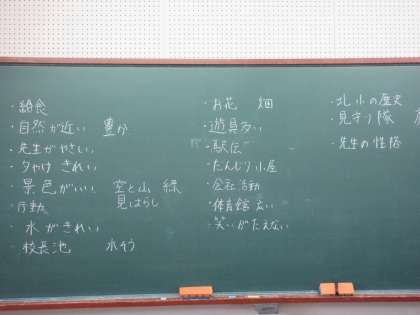 ・給食
・自然が近い 豊か
・先生がやさしい
・夕やけ きれい
・景色がいい 空と山 緑
見はらし
・行動
・水がきれい
・校長池 水そう
・お花 畑
・遊具多い
・駅伝
・だんじり小屋
・会社活動
・体育館 広い
・笑いがたえない
・北小の歴史
・見守り隊
・先生の性格